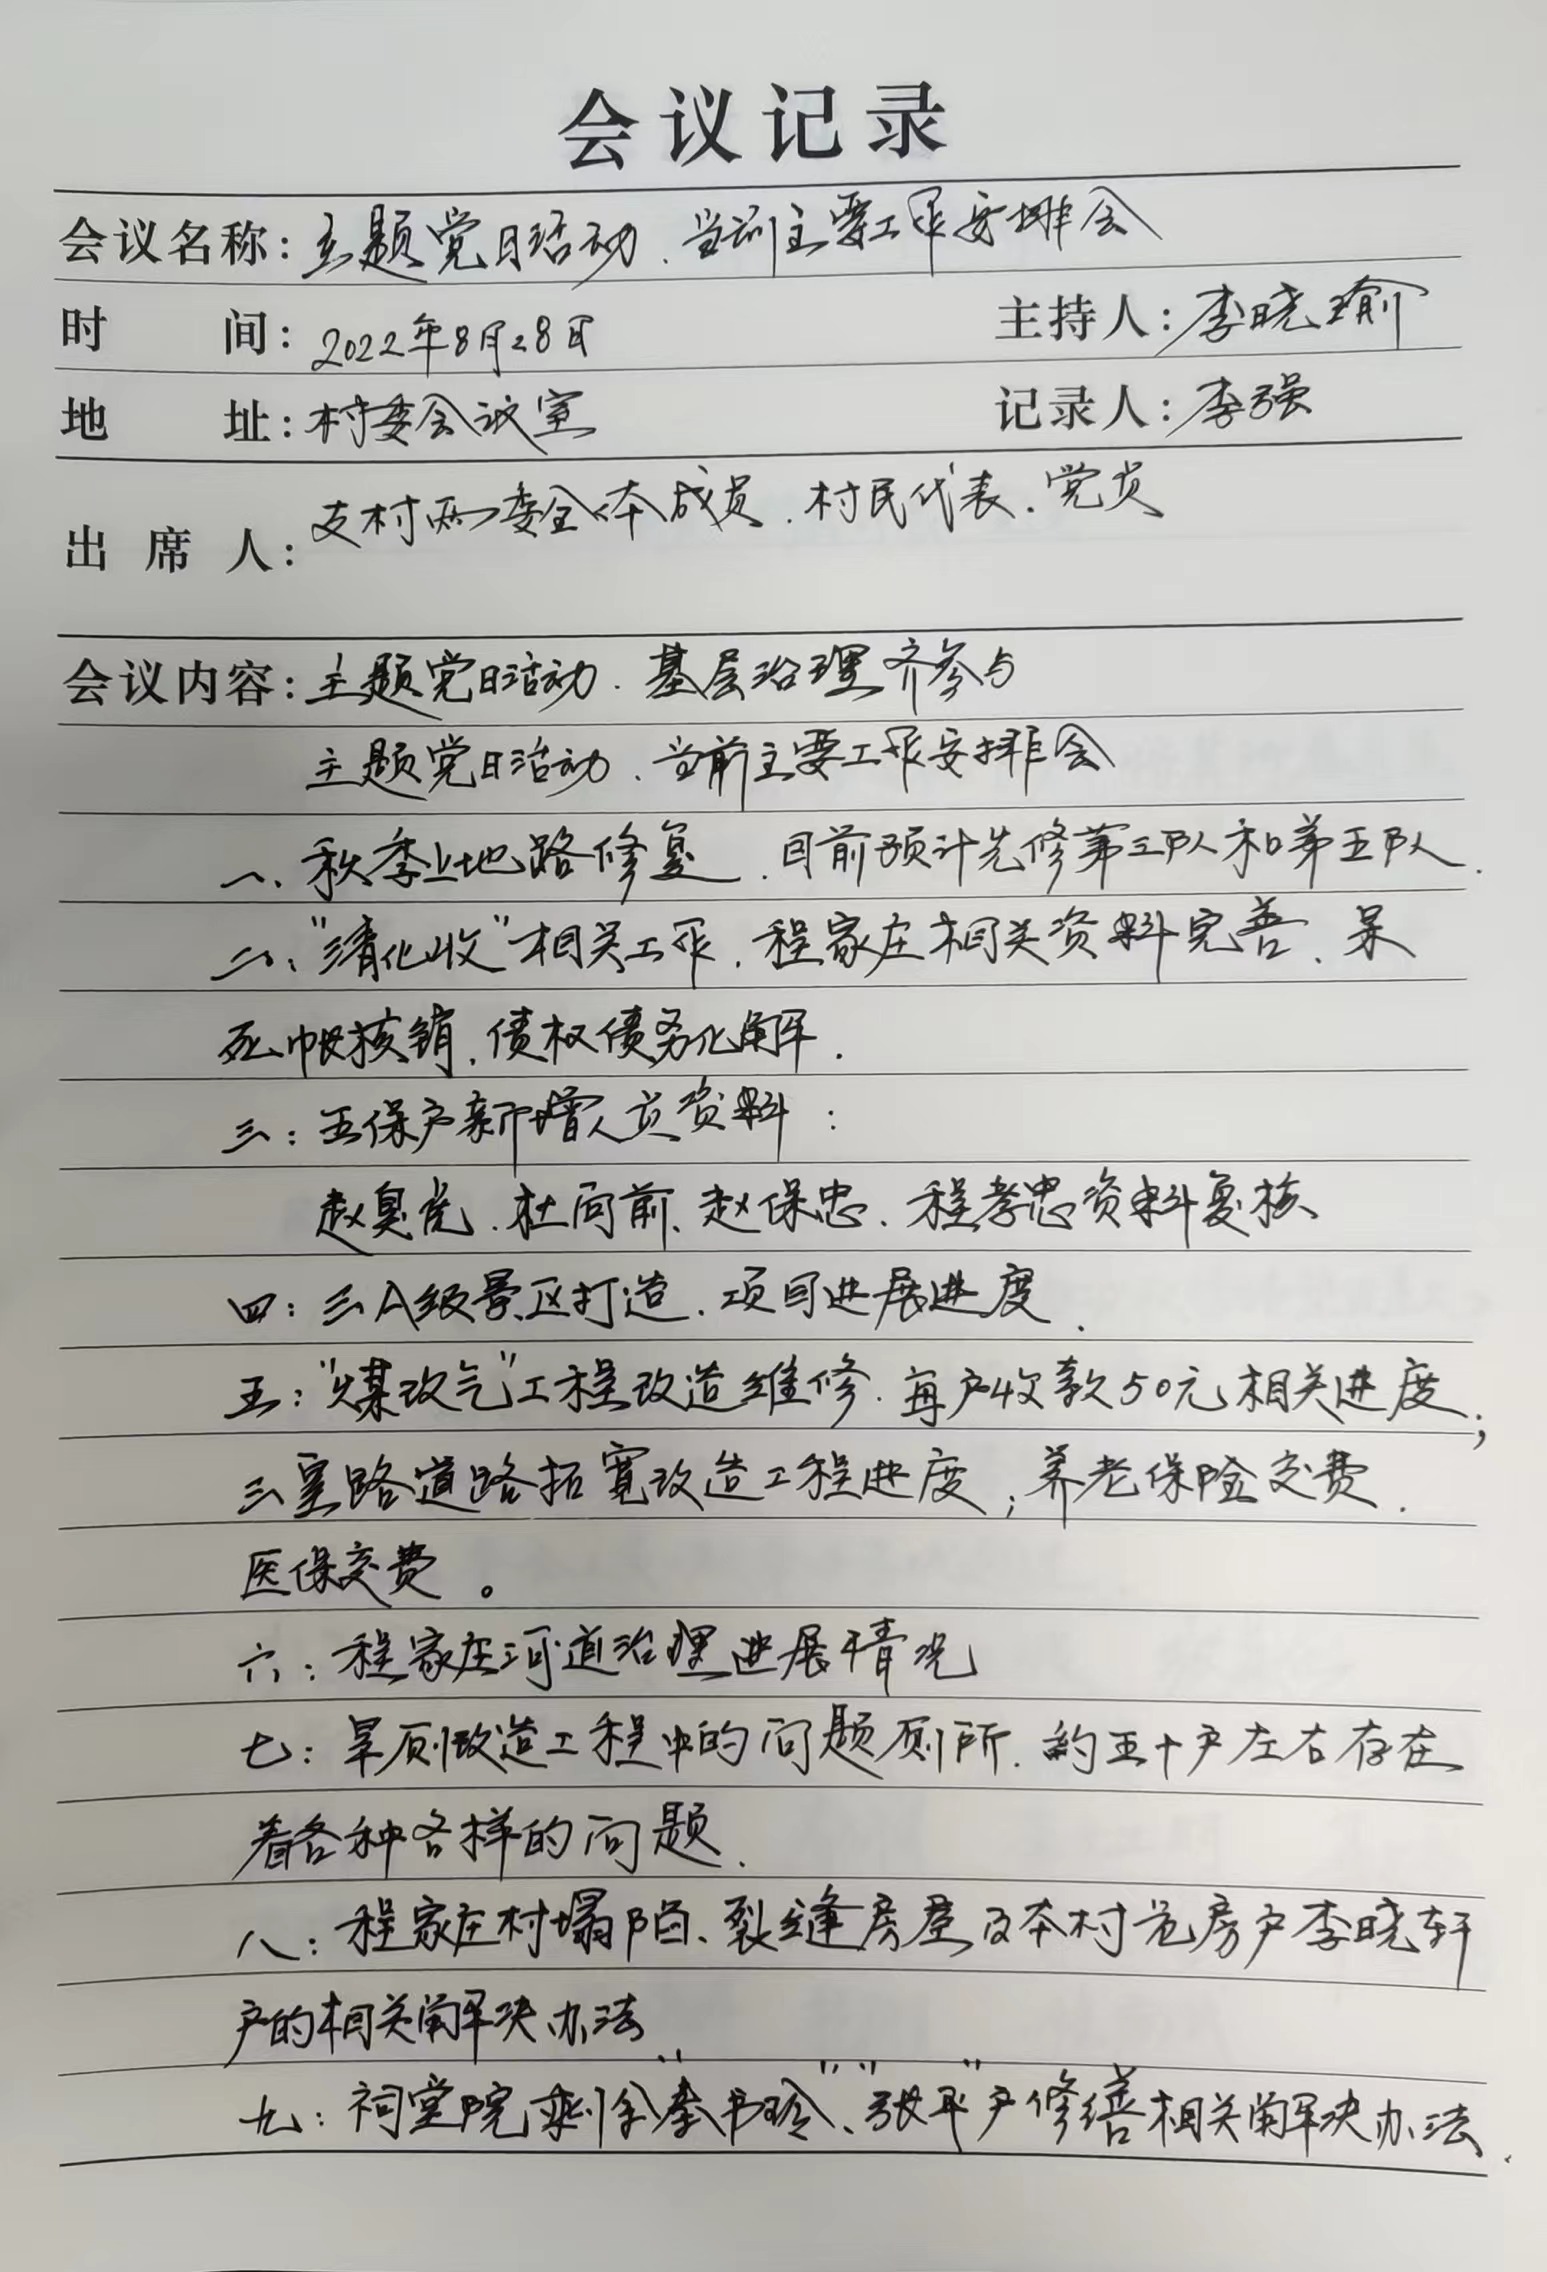 会议记录
会议名称：主题党日活动、当前主要工作安排会
时 间：2022年8月28日 主持人：李晓瑜
地 址：村委会议室 记录人：李强
出 席 人：支村两委全体成员、村民代表、党员
会议内容：主题党日活动、基层治理齐参与
主题党日活动、当前主要工作安排会
一、秋季上地路修复、目前预计先修第三队和第五队.
二、"清化收"相关工作、程家庄相关资料完善、呆
死帐核销、债权债务化解.
三：五保户新增人员资料：
赵臭虎、杜向前、赵保忠、程孝忠资料复核
四：三A级景区打造、项目进展进度.
五："煤改气"工程改造维修、每户收款50元相关进度；
三里路道路拓宽改造工程进度；养老保险交费.
医保交费。
六：程家庄河道治理进展情况
七：旱厕改造工程中的问题厕所、约五十户左右存在
着各种各样的问题.
八：程家庄村塌陷、裂缝房屋及本村危房户李晓轩
户的相关解决办法
九：祠堂院剩余"李书玲"、"张平"户修缮相关解决办法.